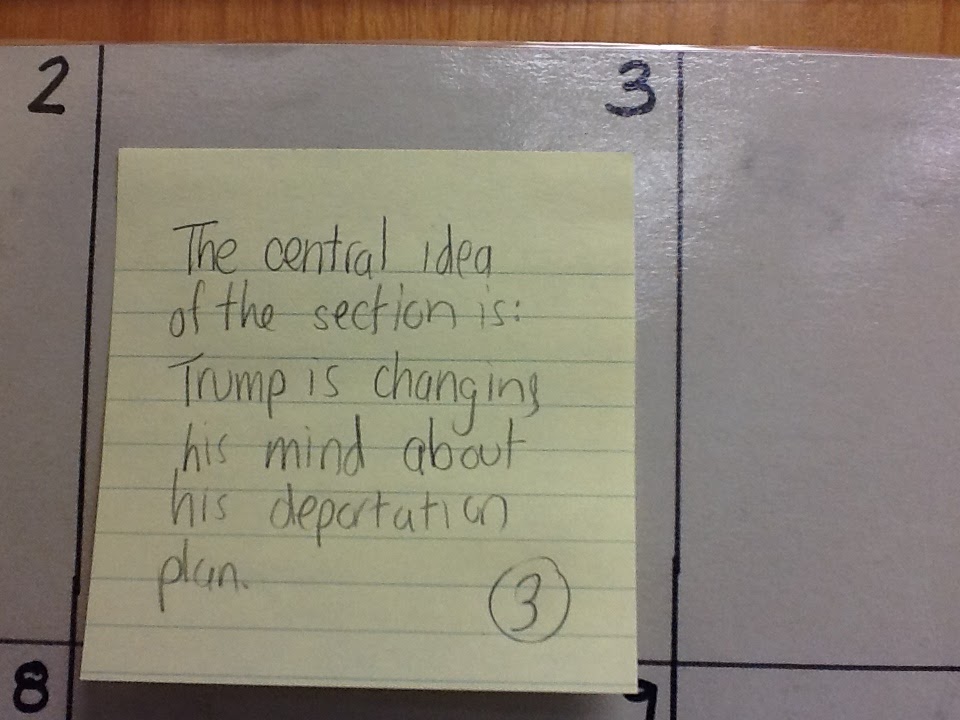 2
3
The central idea
of the section is:
Trump is changing
his mind about
his deportation
plan.
3
8
9